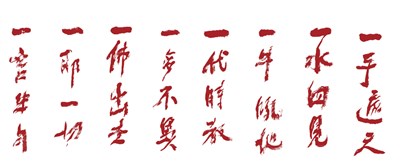 一手遮天
一水四見
一牛吼地
一代時教
一多不異
一佛出世
一即一切
一